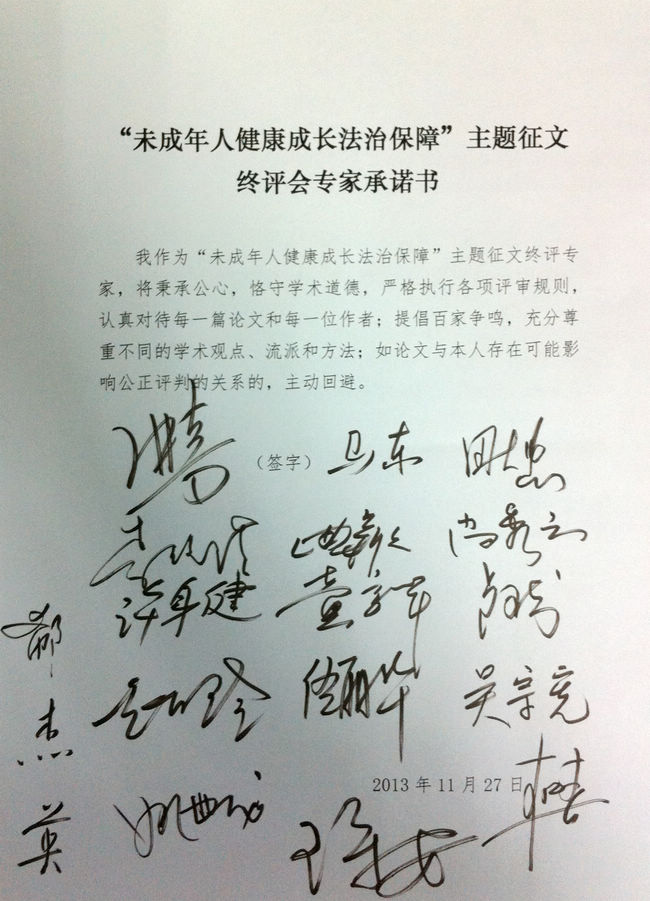 “未成年人健康成长法治保障”主题征文
终评会专家承诺书
我作为“未成年人健康成长法治保障”主题征文终评专
家，将秉承公心，恪守学术道德，严格执行各项评审规则，
认真对待每一篇论文和每一位作者；提倡百家争鸣，充分尊
重不同的学术观点、流派和方法；如论文与本人存在可能影
响公正评判的关系的，主动回避。
（签字） 马东
尚秀云
许身健
佟丽华 吴宗宪
郗杰英
2013 年 11 月 27 日